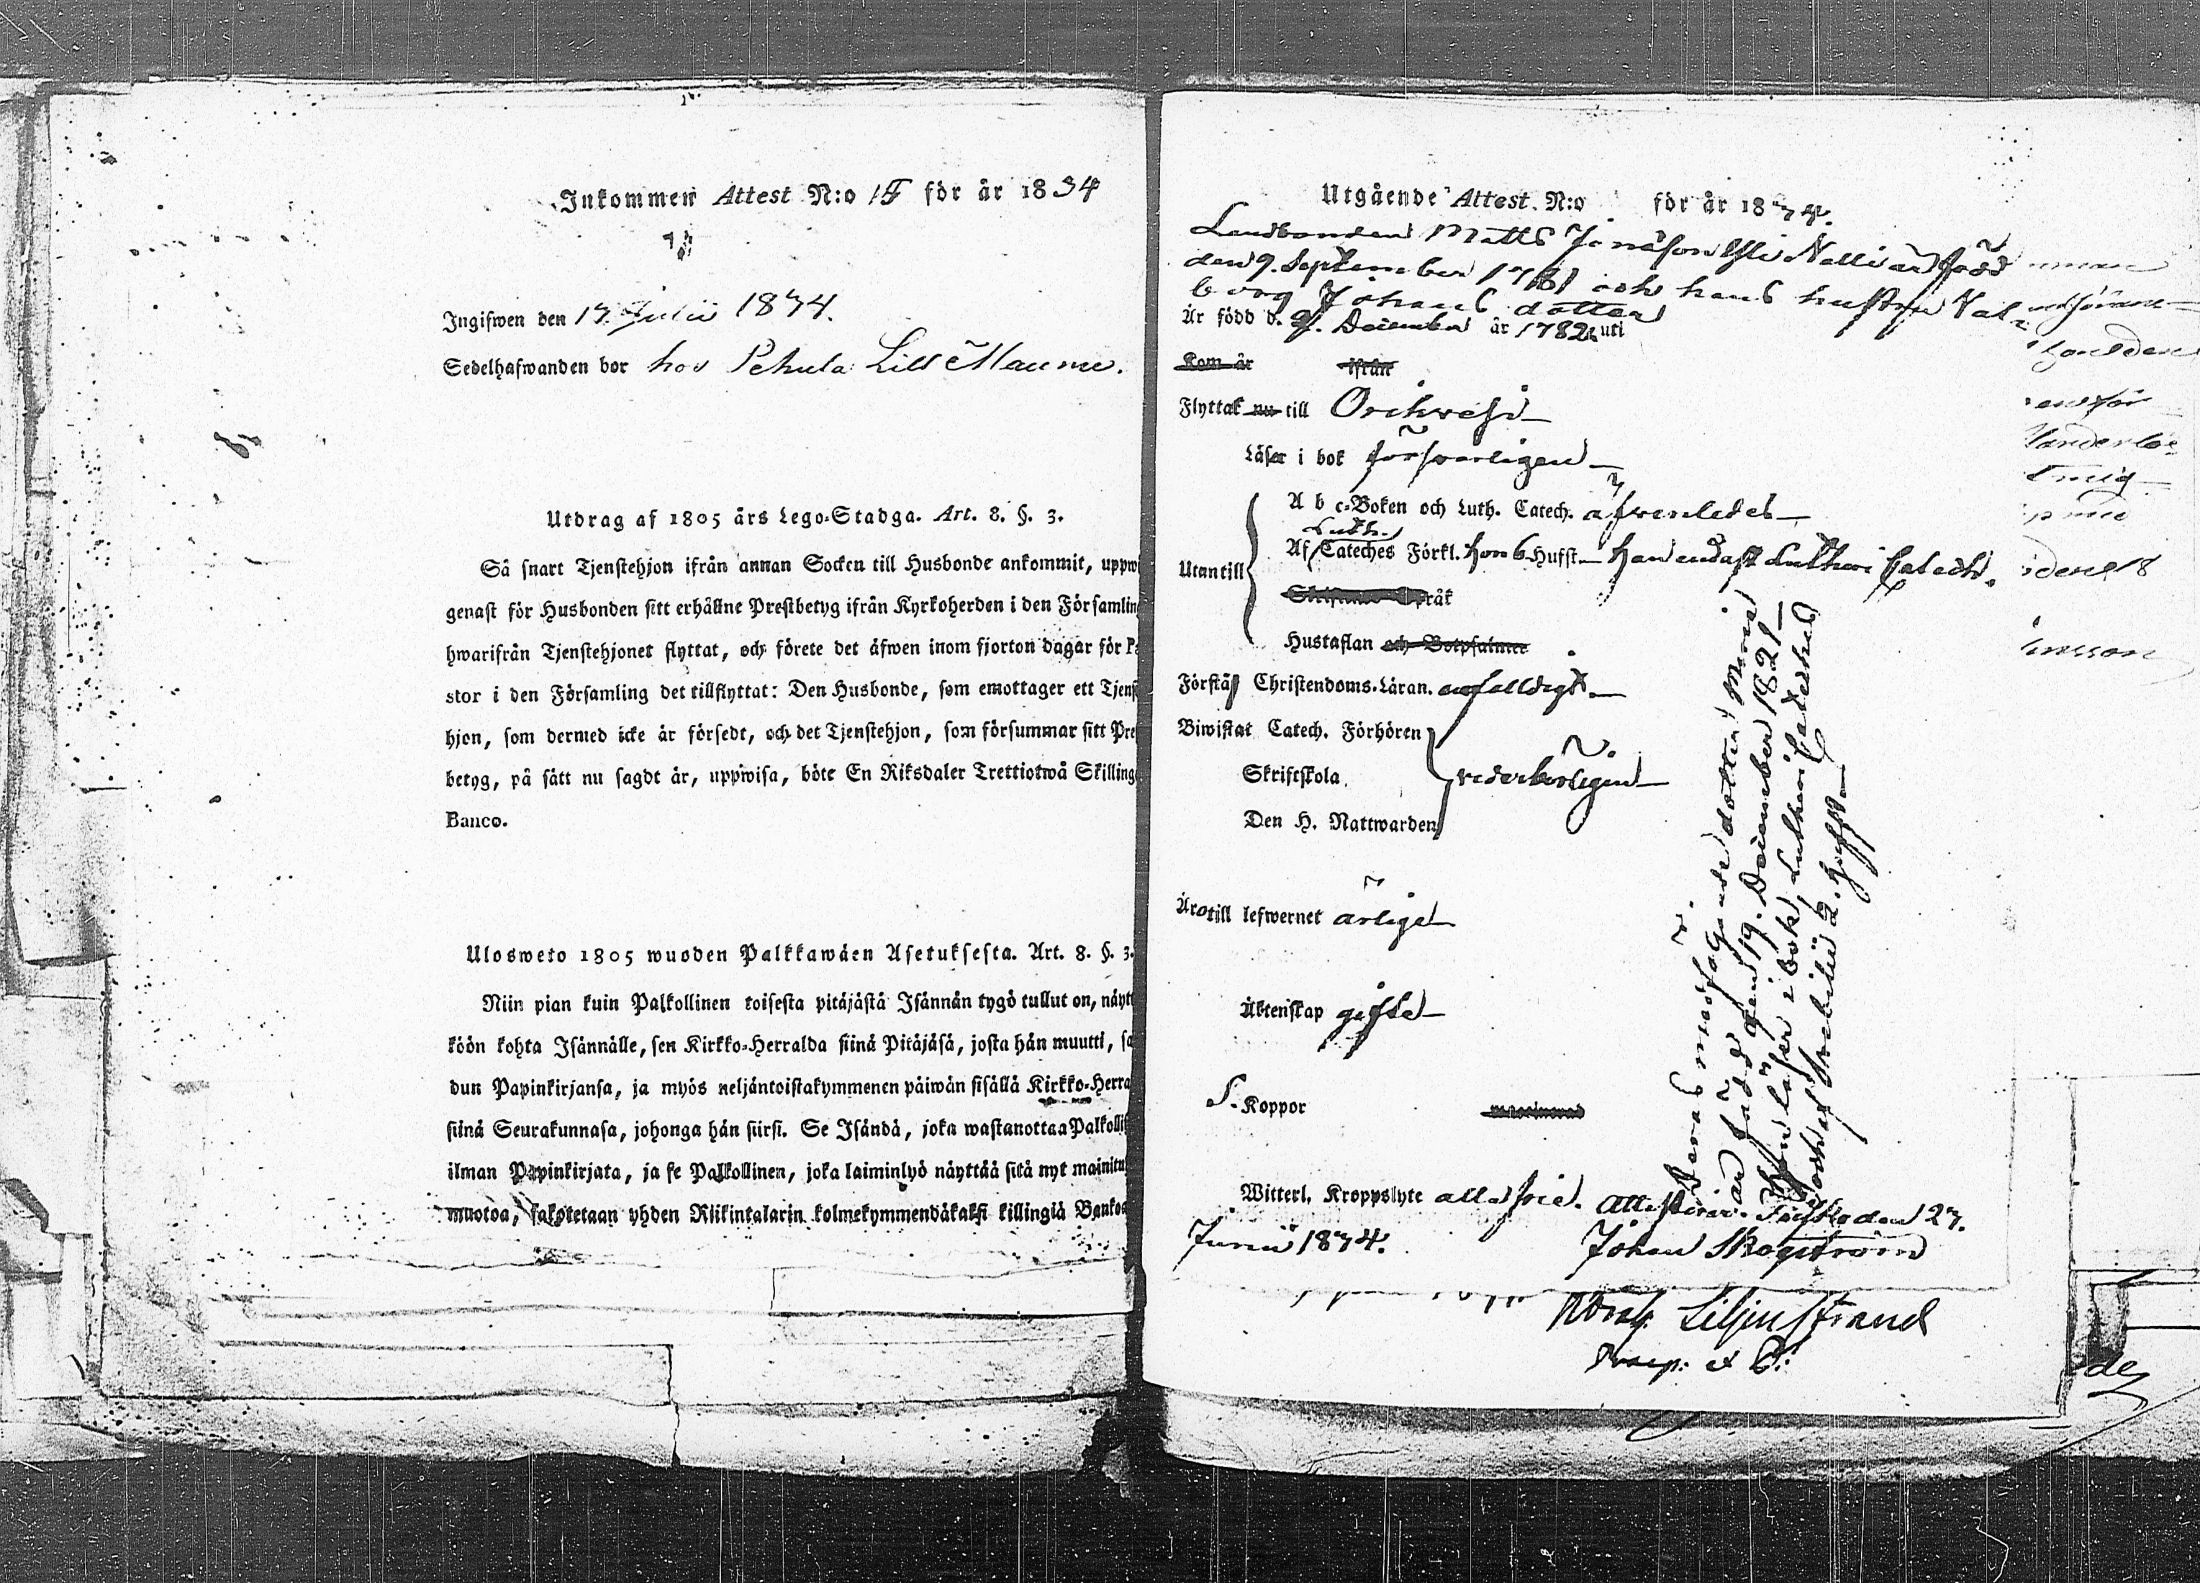 Inkommen Attest N:o 15 för år 1834
Ingifwen den 17 Julii 1834.
Sedelhafwanden bor hos Pehula Lill Maunu.
Utdrag af 1805 års Lego-Stadga. Art. 8. §. 3.
Så snart Tjenstehjon ifrån annan Socken till Husbonde ankommit, uppw
genast för Husbonden sitt erhållne Prestbetyg ifrån Kyrkoherden i den Församlin
hwarifrån Tjenstehjonet flyttat, och förete det äfwen inom fjorton dagar för
stor i den Församling det tillflyttat: Den Husbonde, som emottager ett Tjenst
hjon, som dermed icke är försedt, och det Tjenstehjon, som försummar sitt Pre
betyg, på sätt nu sagdt är, uppwisa, böte En Riksdaler Trettiotwå Skilling
Banco.
Ulosweto 1805 wuoden Palkkawäen Asetuksesta. Art. 8. §. 3.
Niin pian kuin Palkollinen toisesta pitäjästä Isännän tygö tullut on, näytt
köön kohta Isännälle, sen Kirkko-Herralda siinä Pitäjäsä, josta hän muutti, sa
dun Papinkirjansa, ja myös neljäntoistakymmenen päiwän sisällä Kirkko-Herra
siinä Seurakunnasa, johonga hän siirsi. Se Isändä, joka wastanottaa Palkolli
ilman Papinkirjata, ja se Palkollinen, joka laiminlyö näyttää sitä nyt mainitu
muotoa, sakotetaan yhden Riikintalarin kolmekymmendäkaksi killingiä Bankos
Utgående Attest. N:o för år 1834.
Landbonden Matts Jonasson Yli Nelli är född
den 9. September 1781 och hans hustru Val-
borg Johans dotter
Är född d. 21. December år 1782 uti
Kom år ifrån
Flyttat nu till Orihvesi
Läser i bok försvarligen
Utantill
A b c-Boken och Luth. Catech. äfvenledes
Luth.
Af Cateches Förkl. hon 6 Hufst. han endast Lutheri Catech.
Skriftenes Språk
Hustaflan och Botpsalmer
Förstå Christendoms-Läran. enfaldigt
Biwistat Catech. Förhören
Skriftskola vederbörligen
Den H. Nattwarden
Äro till lefwernet ärliga
Äktenskap gifta
S. Koppor vaccinerad
Witterl. Kroppslyte alla frie. Attesterar den 27.
Junii 1834. Johan Skogström
Deras medföljande dotter Maria
är född den 19. December 1821
Hon läser i bok, Lutheri Cateches
och af Svebilii 2. Hufst.
Liljenstrand
Praep: et P: